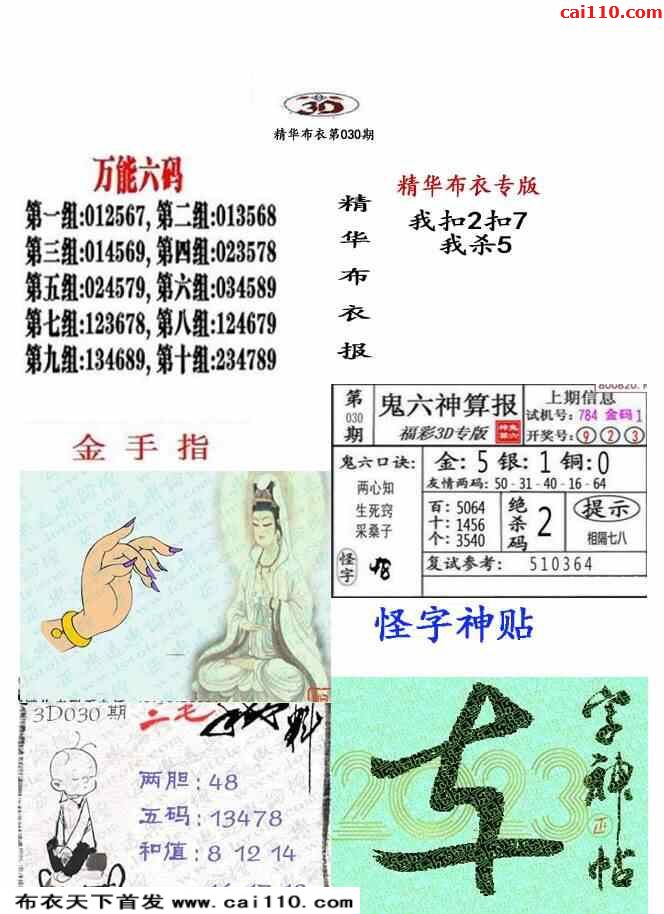 cai110.com
3D
精华布衣第030期
万能六码
第一组:012567, 第二组:013568
第三组:014569, 第四组:023578
第五组:024579, 第六组:034589
第七组:123678, 第八组:124679
第九组:134689, 第十组:234789
精华布衣报
精华布衣专版
我扣2扣7
我杀5
金手指
第030期
鬼六神算报
福彩3D专版
上期信息
试机号: 784 金码1
开奖号: 9 2 3
鬼六口诀:
两心知
生死窍
采桑子
怪字
金: 5 银: 1 铜: 0
友情两码: 50-31-40-16-64
百: 5064
十: 1456
个: 3540
绝杀码 2
提示
相隔七八
复试参考: 510364
怪字神贴
3D030期
二毛
两胆: 48
五码: 13478
和值: 8 12 14
2023
字神帖
布衣天下首发 www.cai110.com